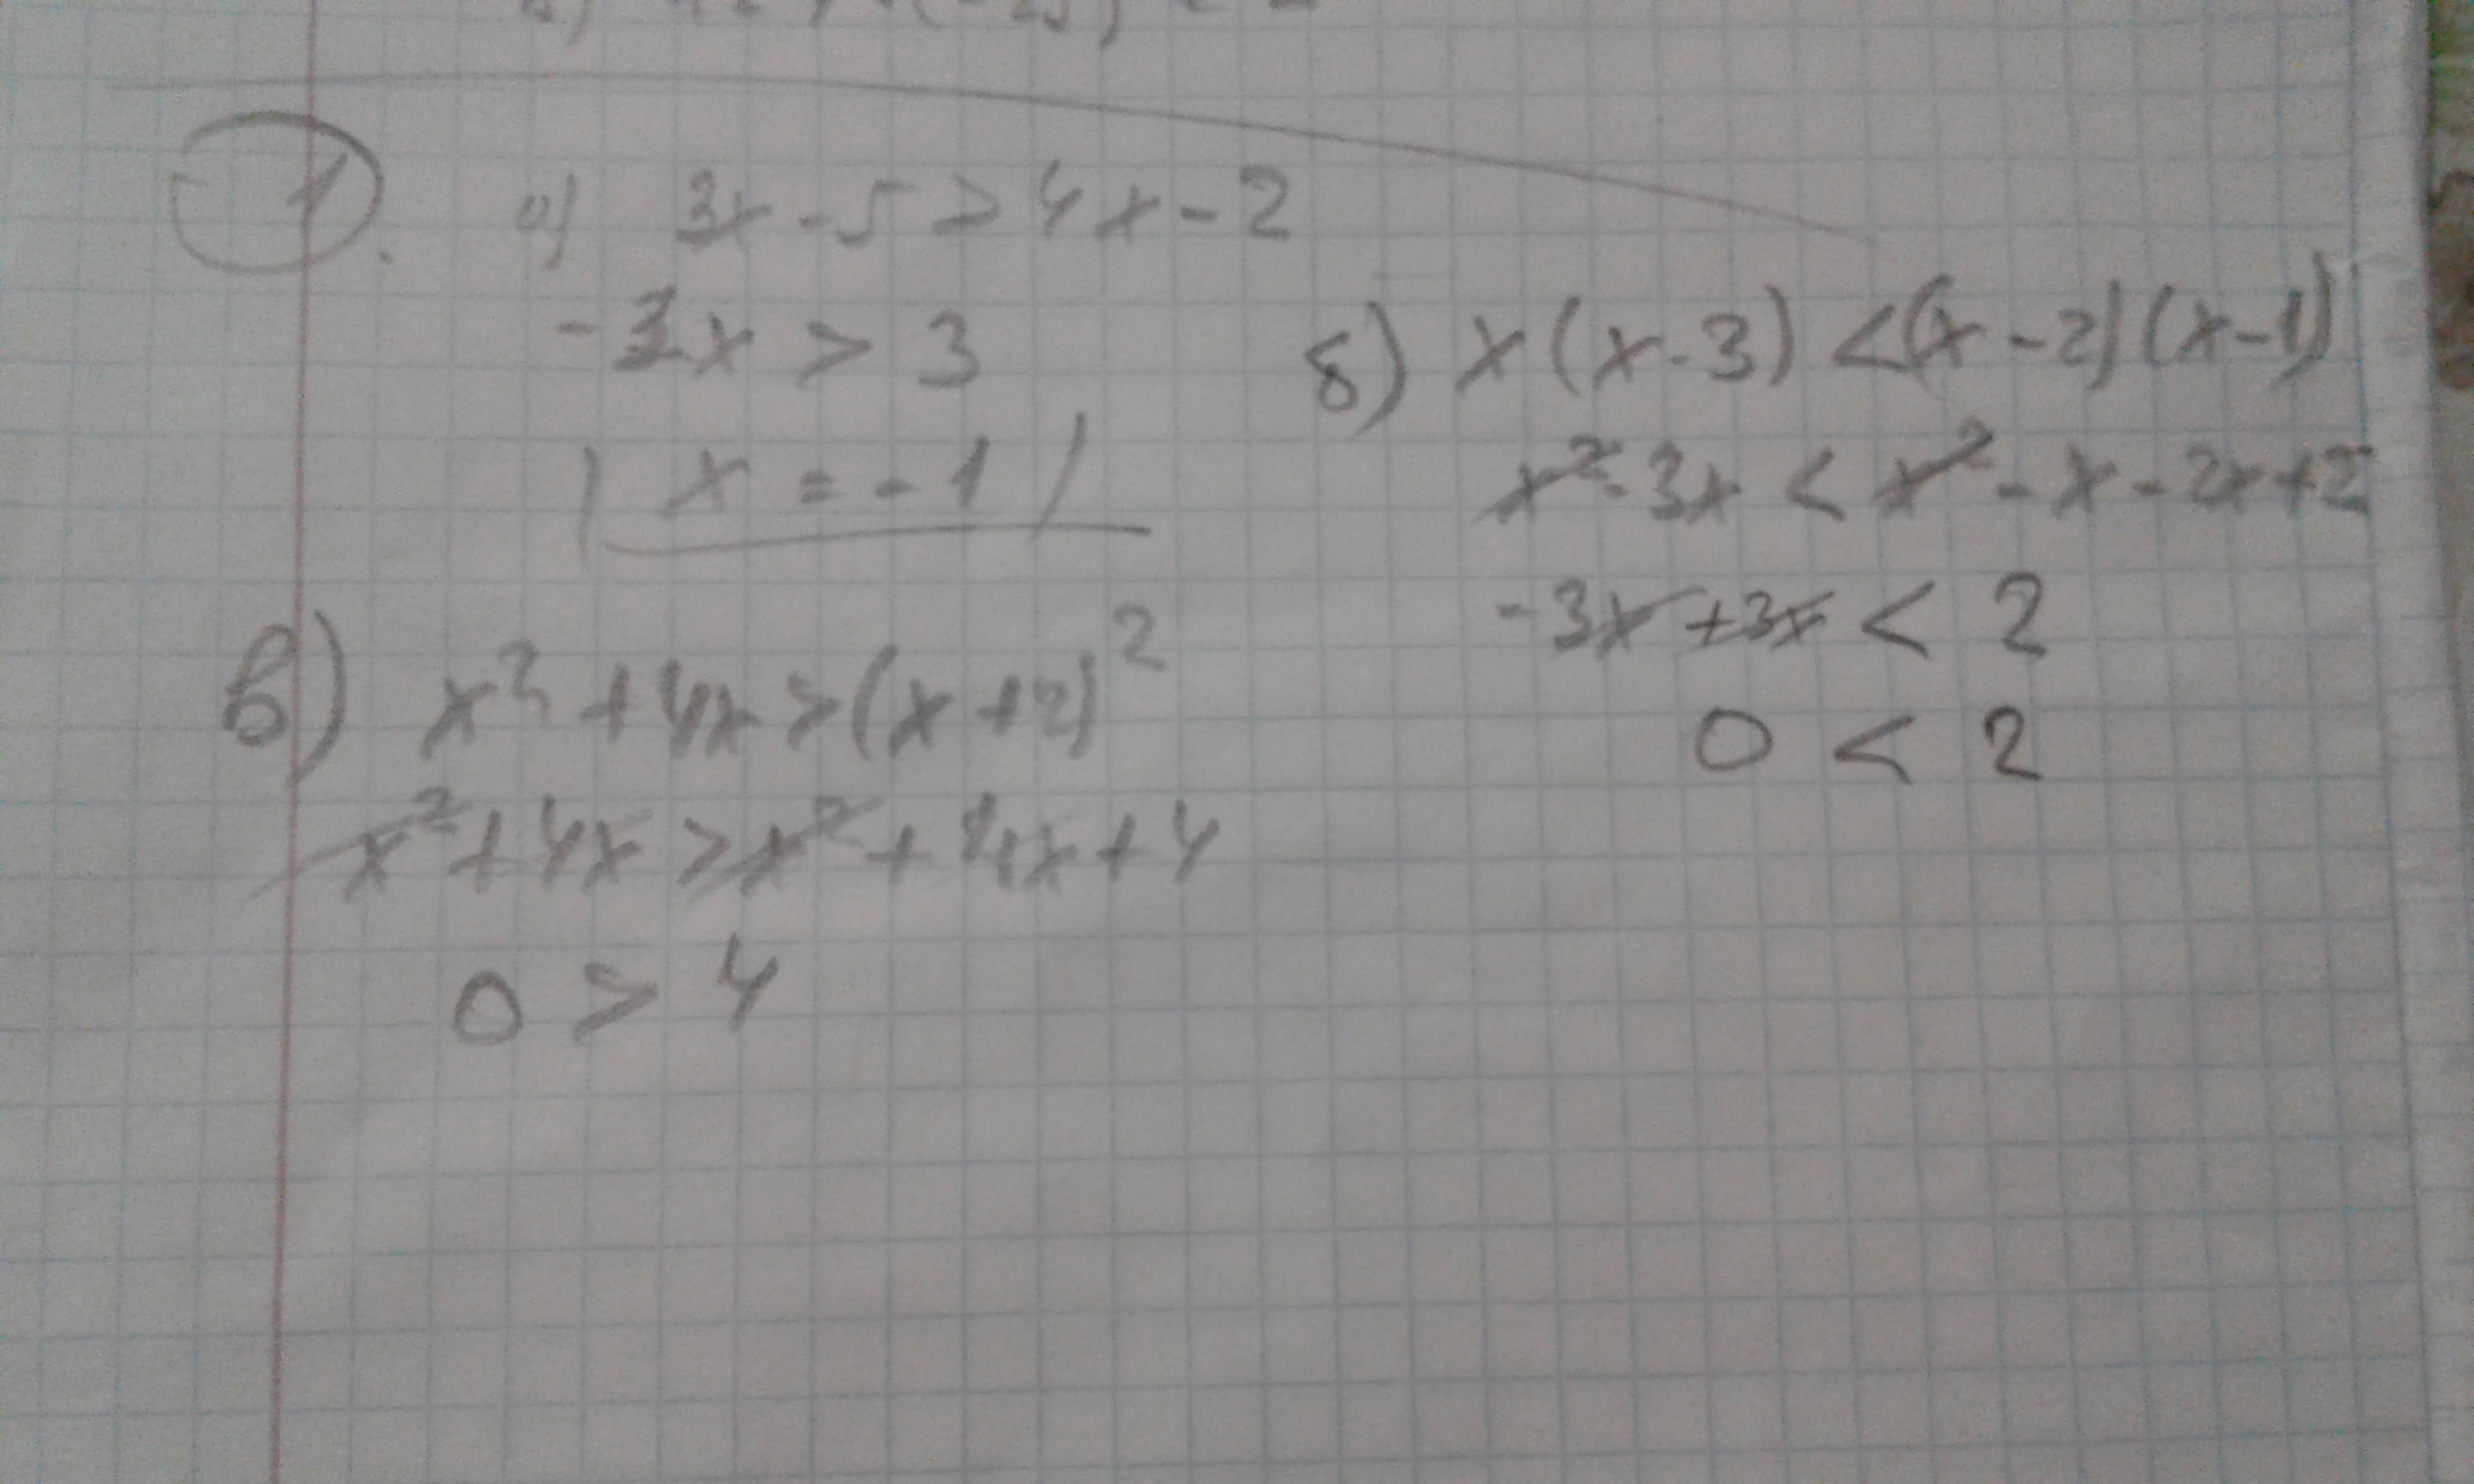 1. а) 3x - 5 > 4x - 2
-3x > 3
x = -1
б) x(x-3) < (x-2)(x-1)
x² - 3x < x² - x - 2x + 2
-3x + 3x < 2
0 < 2
в) x² + 4x > (x+2)²
x² + 4x > x² + 4x + 4
0 > 4